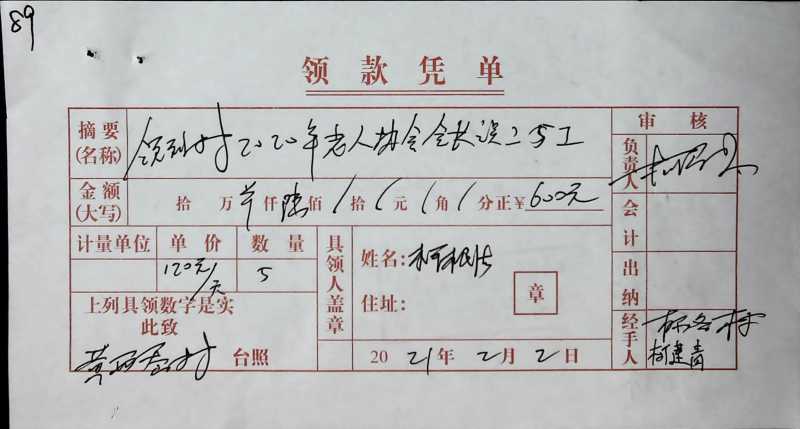 89
领款凭单
摘要(名称) 领到村2020年老人协会会长误工5工
审核
负责人
金额(大写) 拾 万 仟 陆 佰 拾 元 角 分正¥600元
会计
计量单位 单价 数量
120元/天 5
具领人盖章
姓名:
住址:
章
出纳
上列具领数字是实
此致
村 台照
2021年2月2日
经手人
柯建青